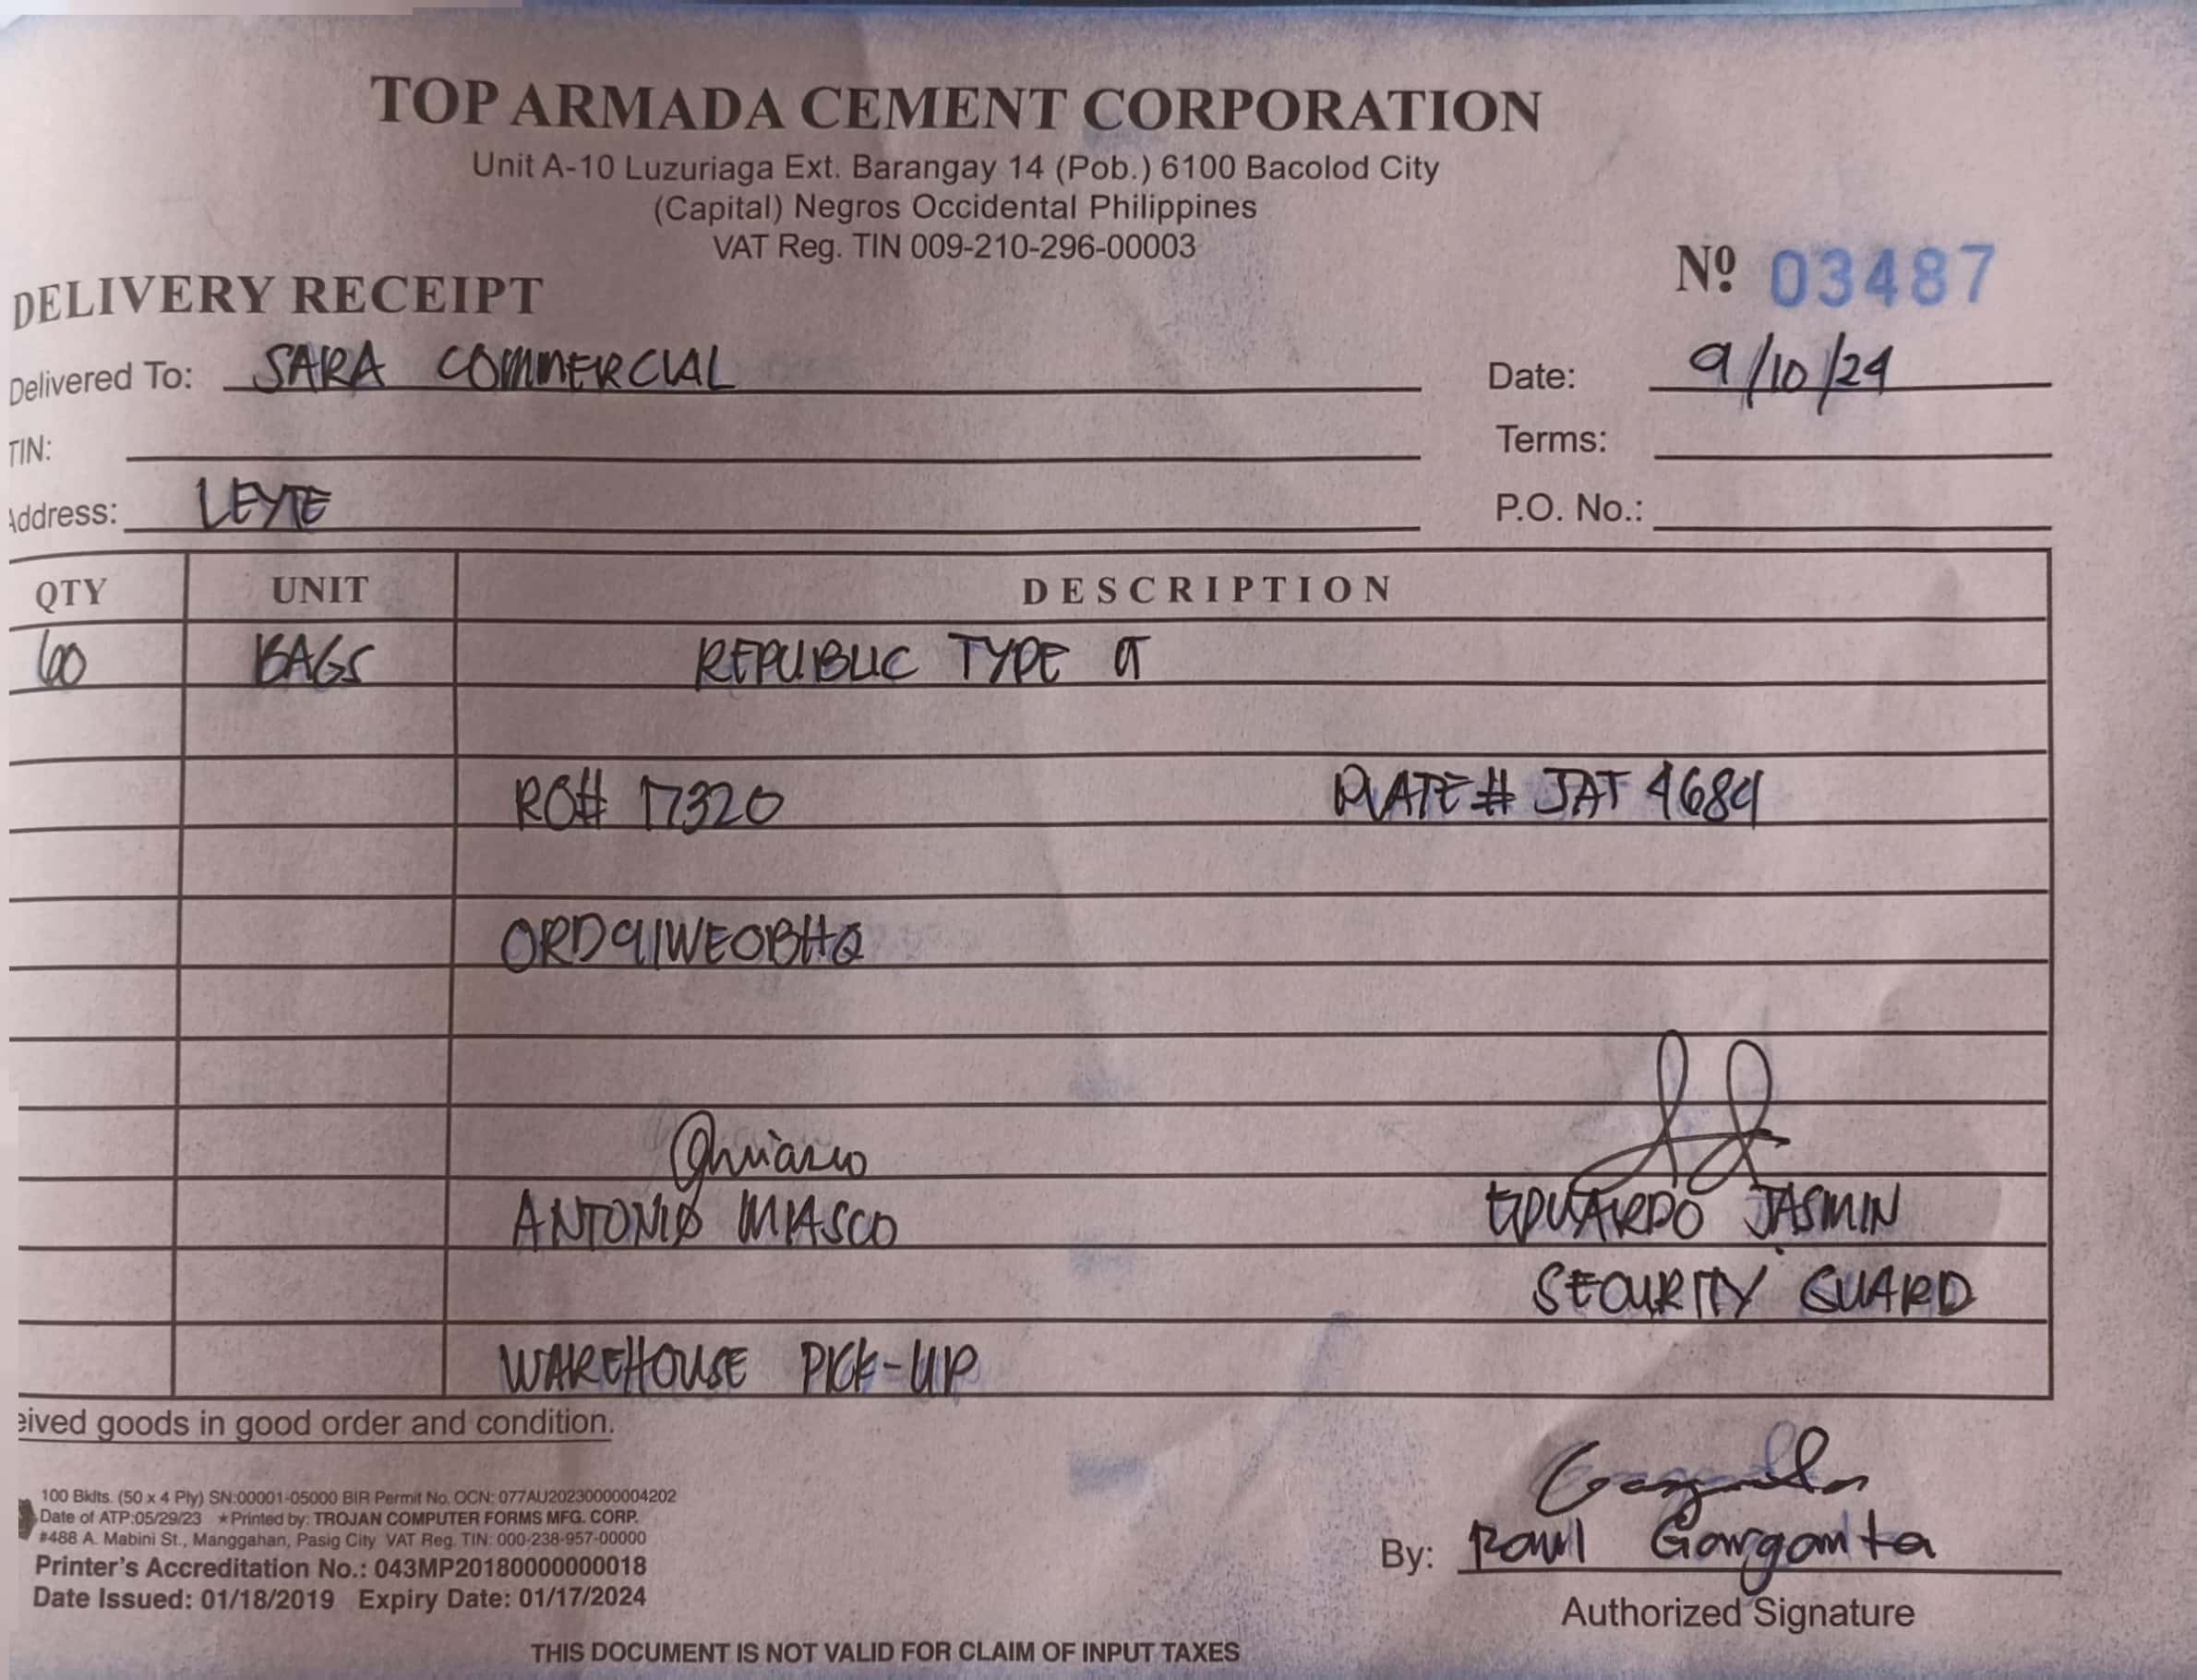 TOP ARMADA CEMENT CORPORATION
Unit A-10 Luzuriaga Ext. Barangay 14 (Pob.) 6100 Bacolod City
(Capital) Negros Occidental Philippines
VAT Reg. TIN 009-210-296-00003
DELIVERY RECEIPT Nº 03487
Delivered To: SARA COMMERCIAL Date: 9/10/24
TIN: Terms:
Address: LEYTE P.O. No.:
QTY UNIT DESCRIPTION
60 BAGS REPUBLIC TYPE
RO# 17320 PLATE# JAT 4684
ORD91WEOBHQ
ANTONIO MIASCO EDUARDO JASMIN
SECURITY GUARD
WAREHOUSE PICK-UP
eived goods in good order and condition.
100 Bklts. (50 x 4 Ply) SN:00001-05000 BIR Permit No. OCN: 077AU20230000004202
Date of ATP:05/29/23 ★Printed by: TROJAN COMPUTER FORMS MFG. CORP.
#488 A. Mabini St., Manggahan, Pasig City VAT Reg. TIN: 000-238-957-00000
Printer's Accreditation No.: 043MP20180000000018
Date Issued: 01/18/2019 Expiry Date: 01/17/2024
By: Raul Garganta
Authorized Signature
THIS DOCUMENT IS NOT VALID FOR CLAIM OF INPUT TAXES